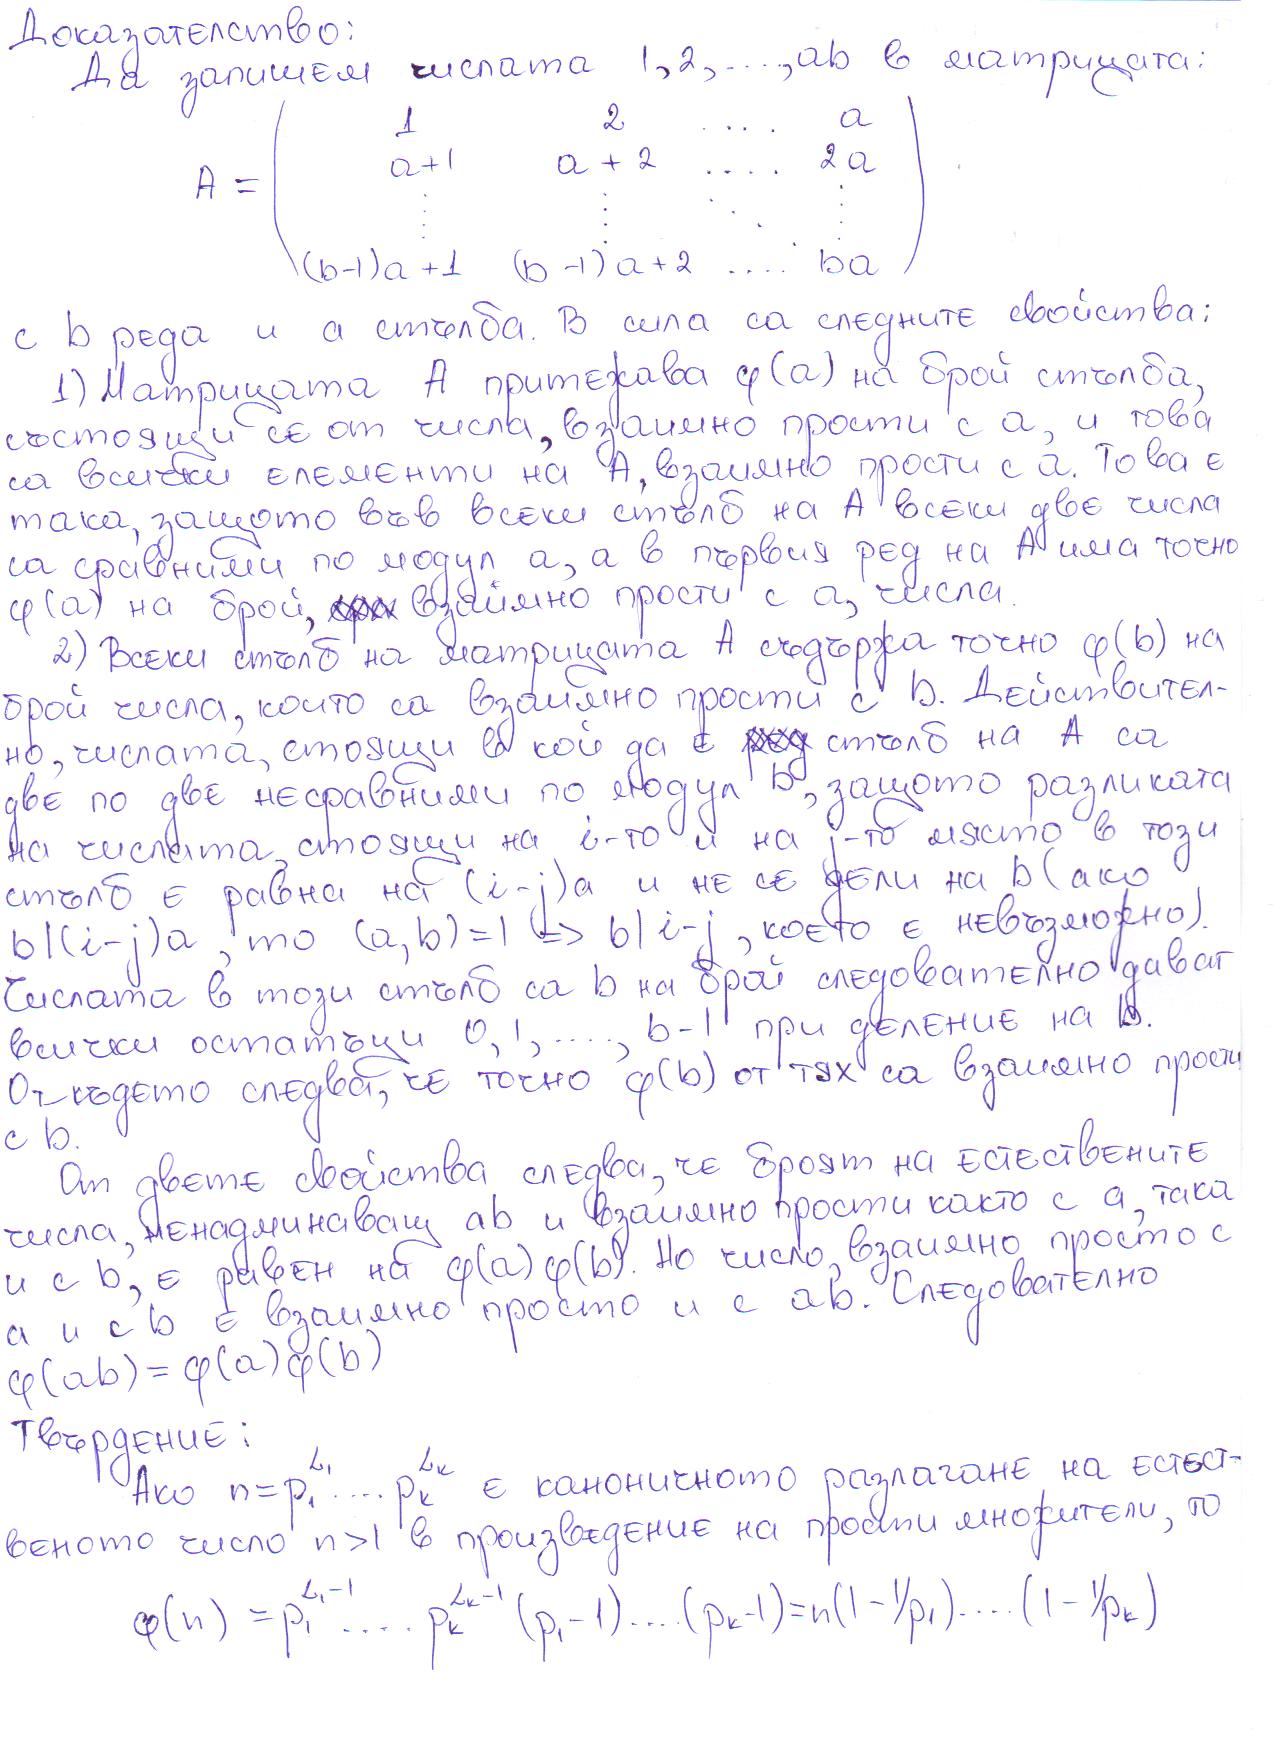 Доказателство:
Да запишем числата 1, 2, ...., ab в матрицата:
1 2 .... a
a+1 a+2 .... 2a
A =
(b-1)a+1 (b-1)a+2 .... ba
с b реда и a стълба. В сила са следните свойства:
1) Матрицата A притежава φ(a) на брой стълба,
състоящи се от числа, взаимно прости с a, и това
са всички елементи на A, взаимно прости с a. Това е
така, защото във всеки стълб на A всеки две числа
са сравними по модул a, а в първия ред на A има точно
φ(a) на брой, взаимно прости с a, числа.
2) Всеки стълб на матрицата A съдържа точно φ(b) на
брой числа, които са взаимно прости с b. Действител-
но, числата, стоящи в кой да е стълб на A са
две по две несравними по модул b, защото разликата
на числата, стоящи на i-то и на j-то място в този
стълб е равна на (i-j)a и не се дели на b (ако
b|(i-j)a, то (a,b)=1 => b|i-j, което е невъзможно).
Числата в този стълб са b на брой следователно дават
всички остатъци 0, 1, ...., b-1 при деление на b.
От където следва, че точно φ(b) от тях са взаимно прости
с b.
От двете свойства следва, че броят на естествените
числа, ненадминаващ ab и взаимно прости както с a, така
и с b, е равен на φ(a)φ(b). Но число, взаимно просто с
a и с b е взаимно просто и с ab. Следователно
φ(ab)=φ(a)φ(b)
Твърдение:
Ако n=p₁^α₁ .... pₖ^αₖ е каноничното разлагане на естест-
веното число n>1 в произведение на прости множители, то
φ(n) = p₁^(α₁-1) ..... pₖ^(αₖ-1) (p₁-1)....(pₖ-1)=n(1-1/p₁)....(1-1/pₖ)